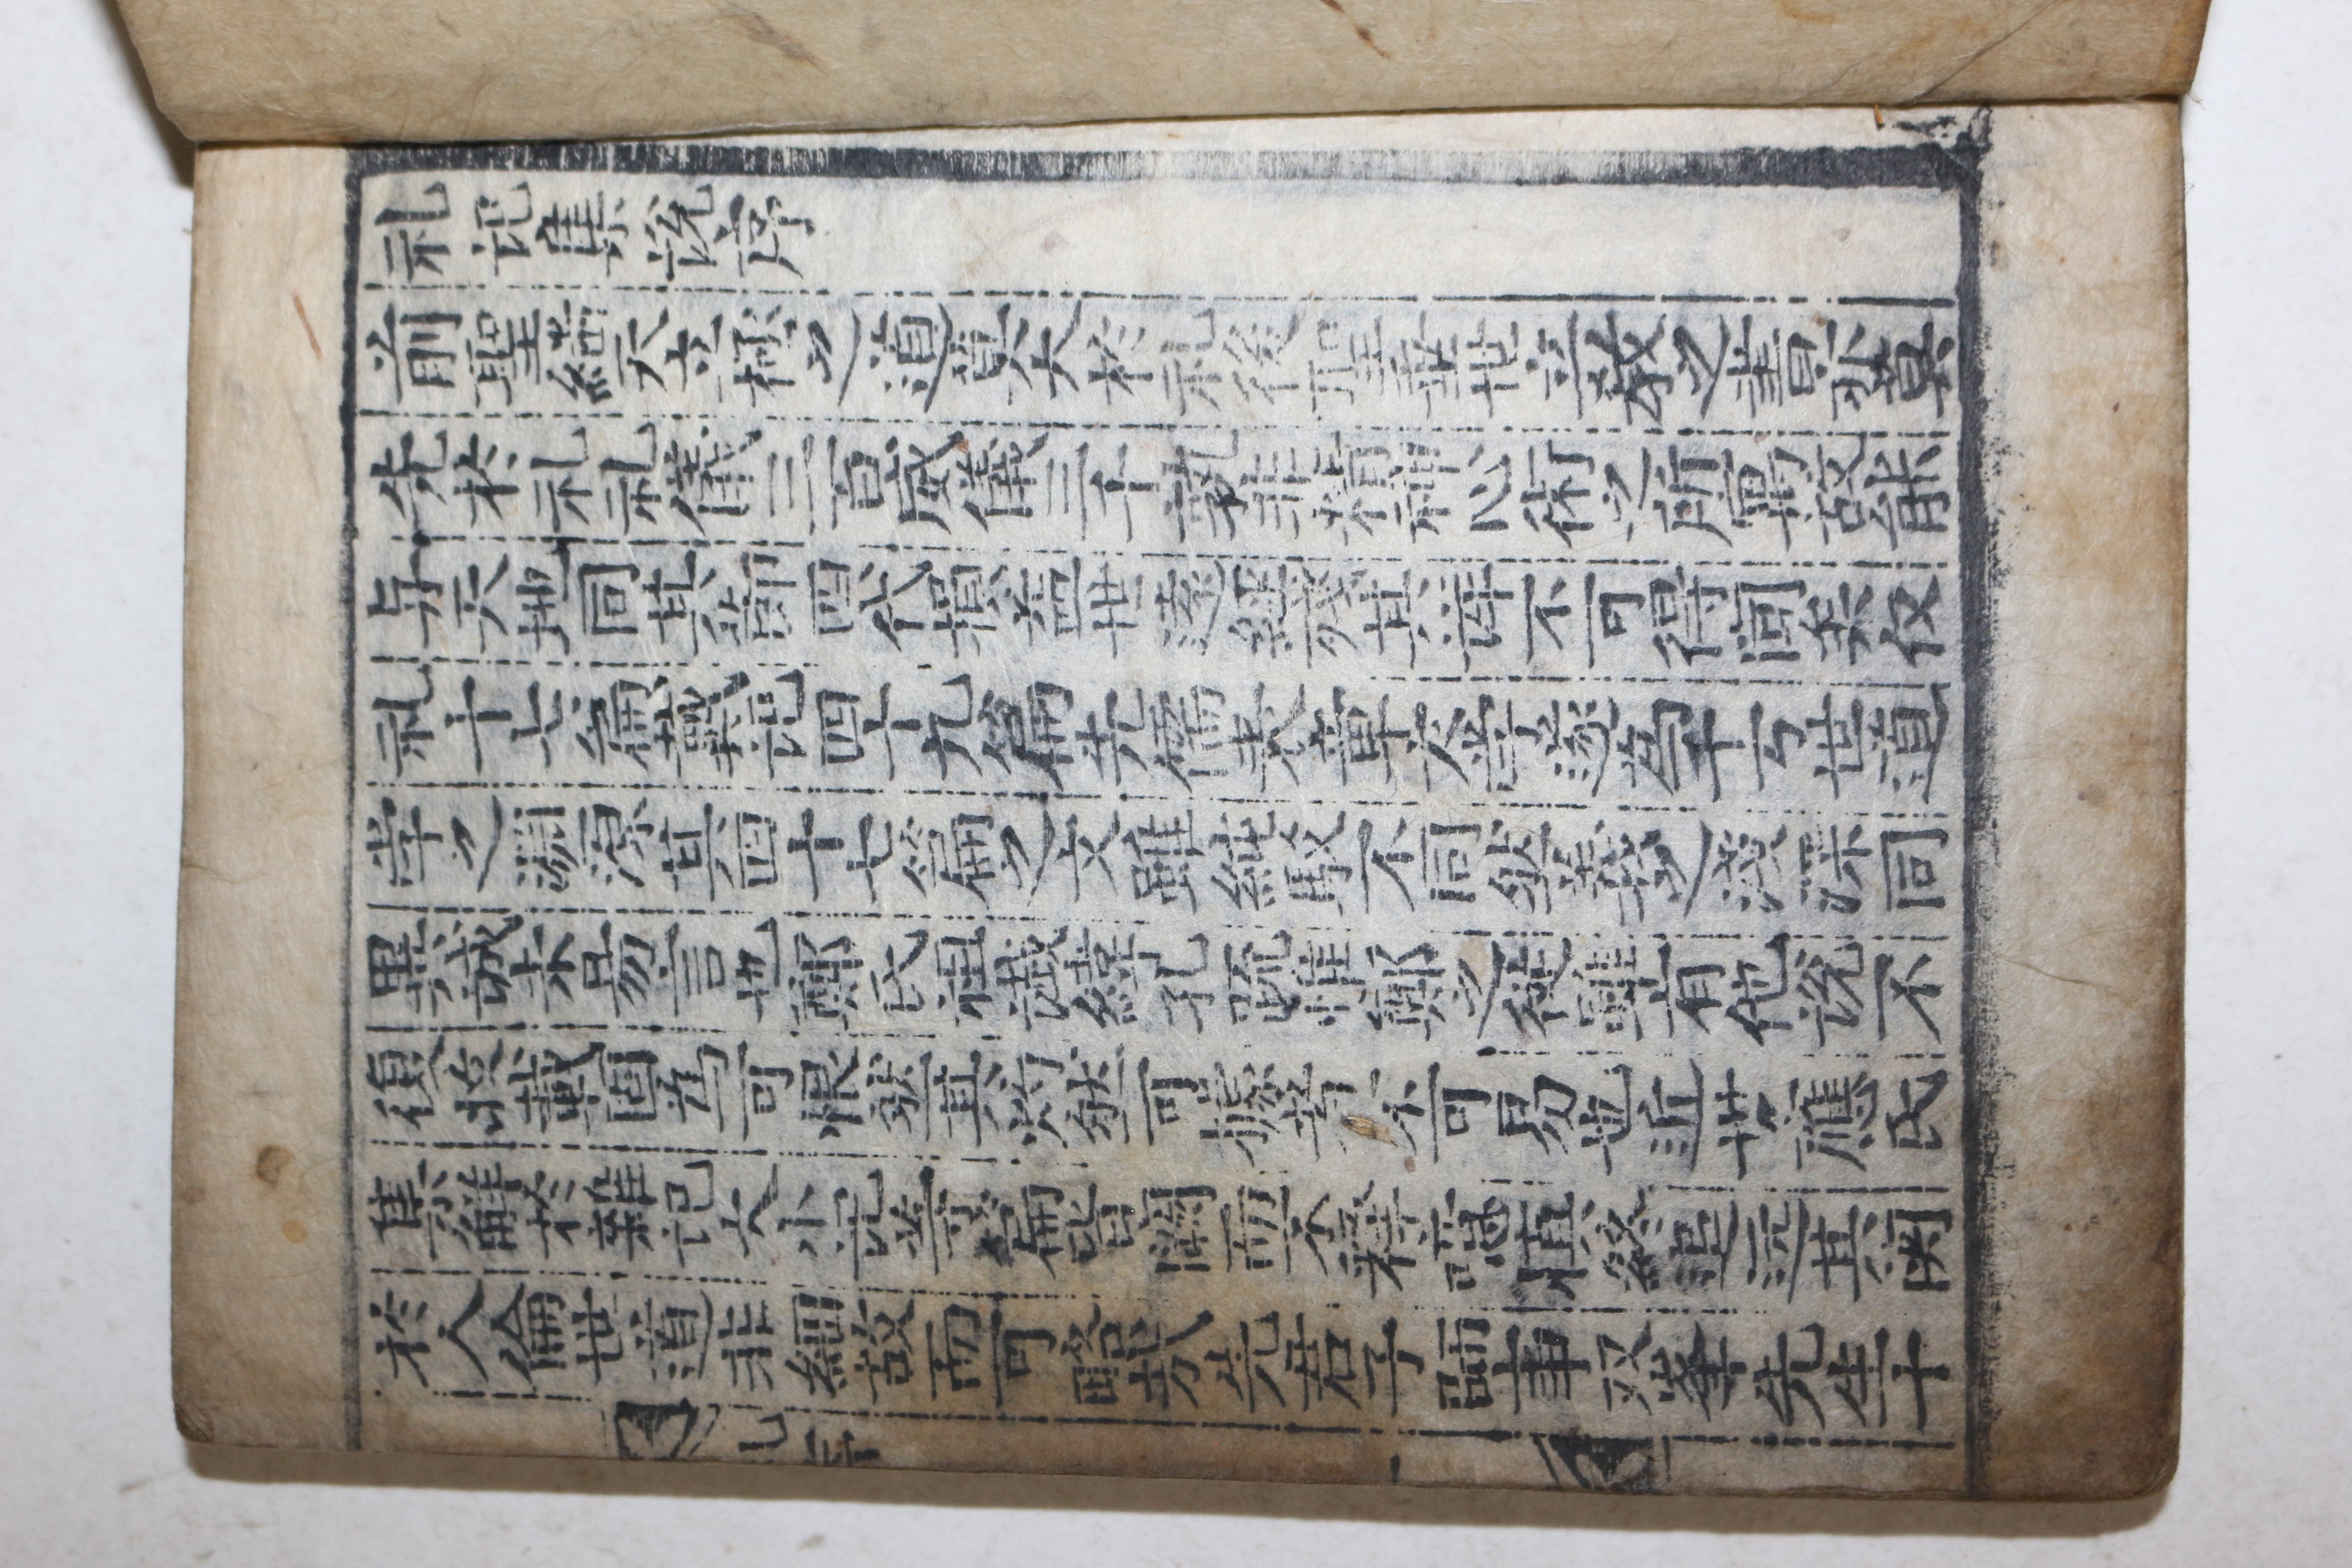 礼記集説序
前聖継天立極之道莫大於礼後聖垂世立教之書亦莫
先於礼礼儀三百威儀三千孰非精神心術之所寓故能
与天地同其節四代損益世遠経残其詳不可得闻矣仅
礼十七篇戴記四十九篇先儒表章大学遂為千万世道
学之淵源其四十七篇之文雖純駁不同然義之淺深同
異誠未易言也鄭氏祖讖緯孔疏惟鄭之従雖有他説不
復收載固為可恨然其灼然可據者不可易也近世應氏
集解於雜記大小記等篇皆闕而不釋噫慎終追远其関
於人倫世道非細故而可略哉先君子師事双峯先生十
礼序
一